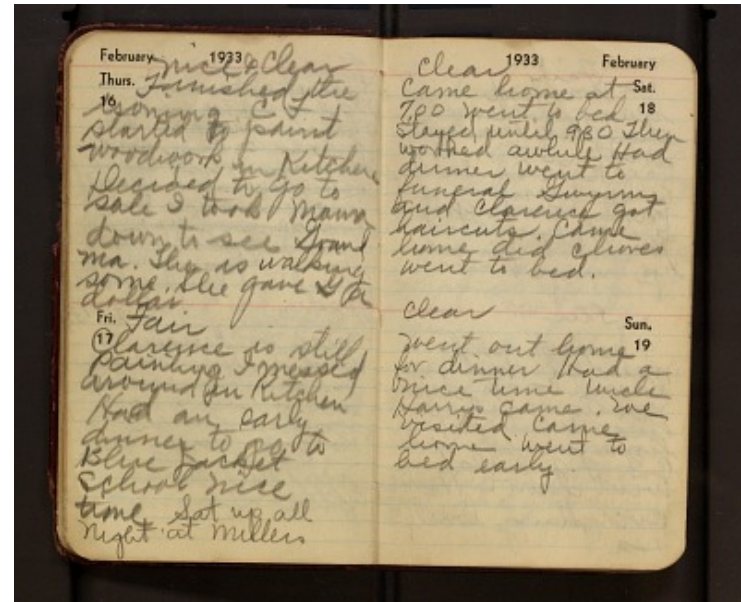 February 1933
nice & Clear
Thurs.
16
Finished the
ironing. C
started to paint
woodwork in Kitchen
Decided to go to
sale I took Mama
down to see Grand
ma. She is walking
some. She gave a
dollar
Fri.
17
Fair
Clarence is still
painting I messed
around in Kitchen
Had an early
dinner to go to
Blue Jacket
School nice
time. Sat up all
night at Millers
1933 February
Sat.
18
Clear
Came home at
7.00 went to bed
stayed until 930 Then
worked awhile Had
dinner went to
funeral
and Clarence got
haircuts. Came
home did chores
went to bed.
Sun.
19
Clear
Went out home
for dinner Had a
nice time Uncle
Harrys came. We
visited. Came
home went to
bed early